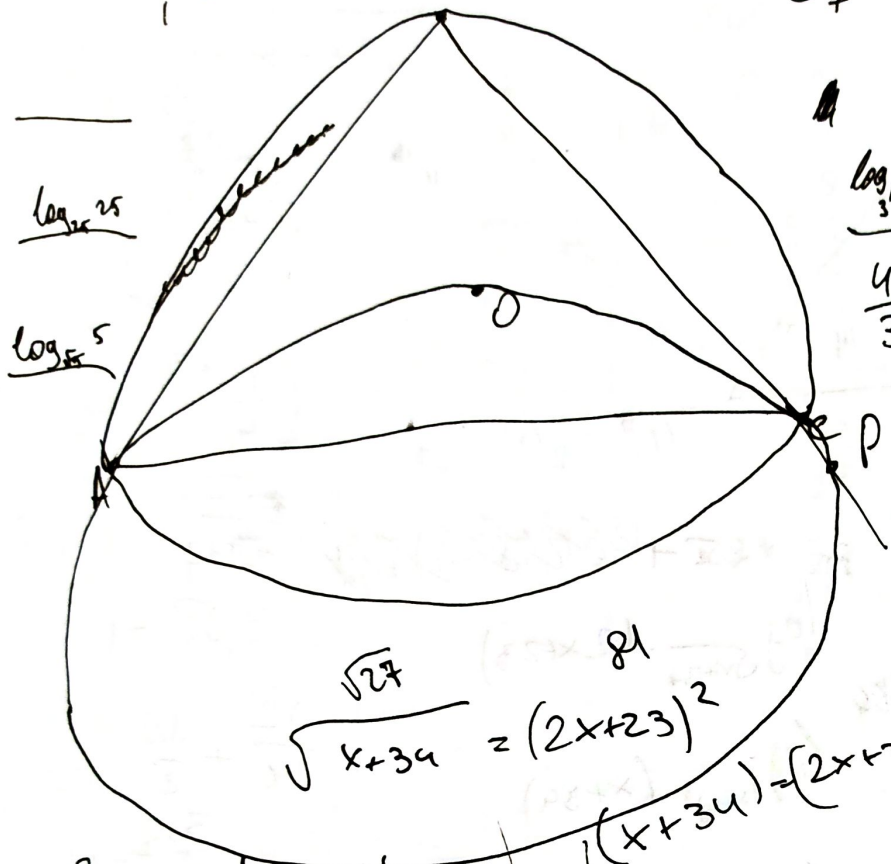 log₂₅ 25
log
3
4
3
log_{√5} 5
O
A
C
P
√27
81
√(x+34) = (2x+23)²
(x+34)=(2x+